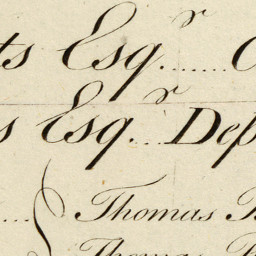 ts Esqr.......
s Esqr....Dep
Thomas
Thomas